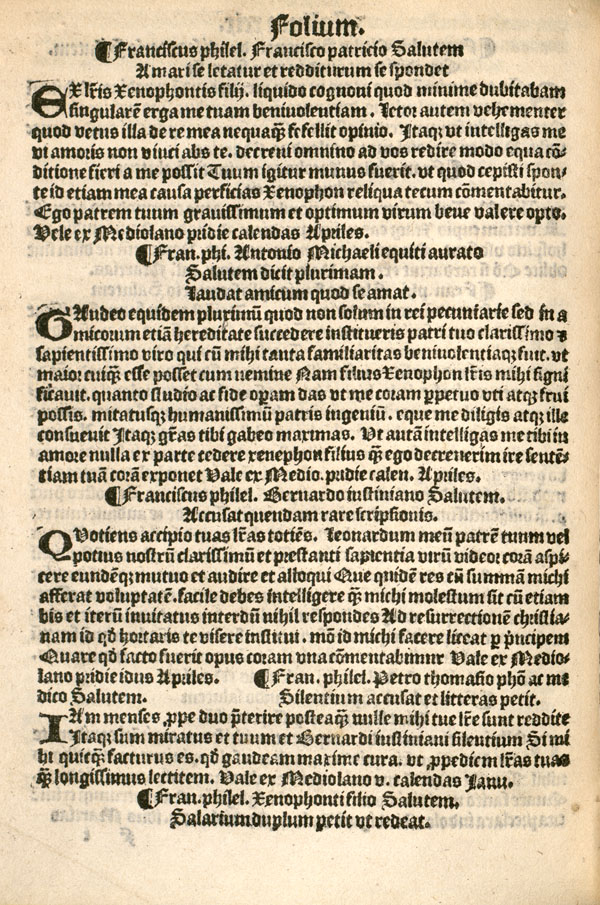 Folium.
¶ Franciscus philel. Francisco patricio Salutem
Amari se letatur et redditurum se spondet
EX lr̃is Xenophontis filij. liquido cognoni quod minime dubitabam
singularē erga me tuam beniuolentiam. letor autem vehementer
quod vetus illa de re mea nequaq̃ fefellit opinio. Itaqꝫ vt intelligas me
vt amoris non viuci abs te. decreui omnino ad vos redire modo equa cō/
ditione fieri a me possit Tuum igitur munus fuerit. vt quod cepisti spon/
te id etiam mea causa perficias Xenophon reliqua tecum cōmentabitur.
Ego patrem tuum grauissimum et optimum virum beue valere opto.
Vele ex Mediolano pridie calendas Apriles.
¶ Fran. phi. Antonio Michaeli equiti aurato
Salutem dicit plurimam.
laudat amicum quod se amat.
GAudeo equidem plurimū quod non solum in rei pecuniarie sed in a
micorum etiā hereditate succedere institueris patri tuo clarissimo ⁊
sapientissimo viro qui cū mihi tanta familiaritas beniuolentiaqꝫ fuit. vt
maior cuiq̃ esse posset cum uemine Nam filius Xenophon lr̃is mihi signi
ficauit. quanto studio ac fide opam das vt me coram ꝑpetuo vti atqꝫ frui
possis. mitatusqꝫ humanissimū patris ingeniū. eque me diligis atqꝫ ille
consueuit Itaqꝫ gr̃as tibi gabeo maximas. Vt autā intelligas me tibi in
amore nulla ex parte cedere xenephon filius q̃ ego decrenerim ire sentē/
tiam tuā corā exponet Vale ex Medio. pridie calen. Apriles.
¶ Franciscus philel. Bernardo iustiniano Salutem.
Accusat quendam rare scriptionis.
QVotiens accipio tuas lr̃as totiēs. Leonardum meū patrē tuum vel
potius nostrū clarissimū et prestanti sapientia virū videor corā aspi/
cere eundēqꝫ mutuo et audire et alloqui Que quidē res cū summā michi
afferat voluptatē. facile debes intelligere q̃ michi molestum sit cū etiam
bis et iterū inuitatus interdū nihil respondes Ad resurrectionē christia/
nam id qđ hortaris te visere institui. mō id michi facere liceat ꝑ p̄ncipem
Quare qđ facto fuerit opus coram vna cōmentabimur Vale ex Medio/
lano pridie idus Apriles. ¶ Fran. philel. Petro thomasio phō ac me
dico Salutem. Silentium accusat et litteras petit.
IAm menses ꝓpe duo p̄terire posteaq̃ uulle mihi tue lr̃e sunt reddite
Itaqꝫ sum miratus et tuum et Bernardi iustiniani silentium Si mi
hi quitq̃ facturus es. qđ gaudeam maxime cura. vt ꝓpediem lr̃as tuas
q̃ longissimus lectitem. Vale ex Mediolano v. calendas Janu.
¶ Fran. philel. Xenophonti filio Salutem.
Salarium duplum petit vt redeat.